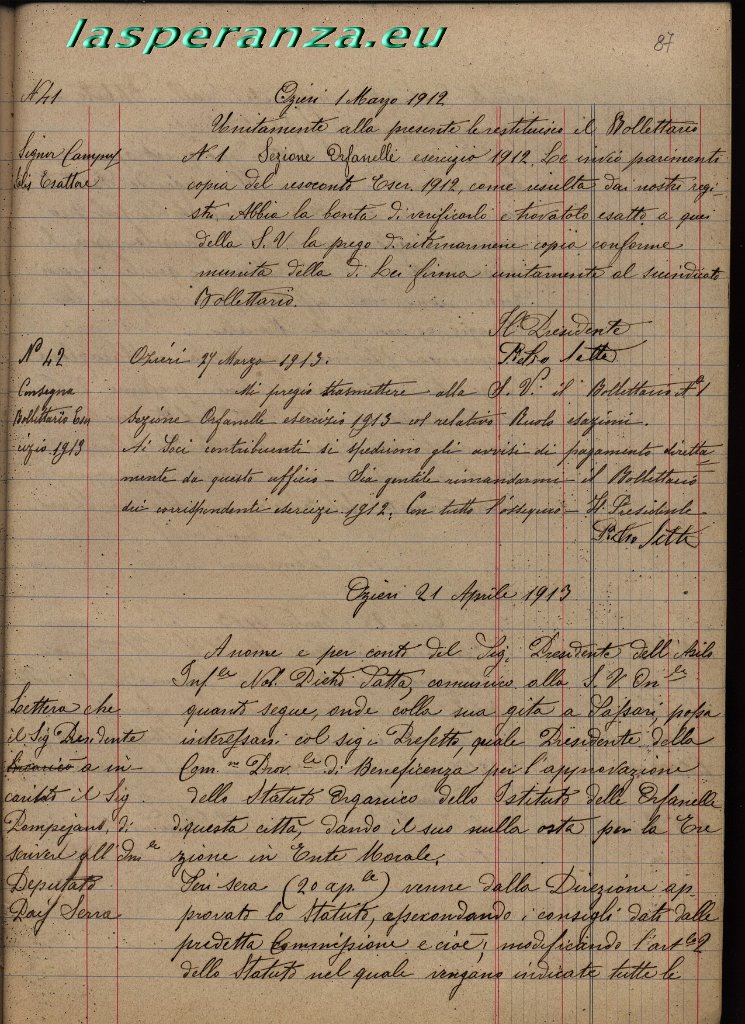 lasperanza.eu
87
N. 41
Ozieri 1 Marzo 1912
Signor Campus
Elis Esattore
Unitamente alla presente le restituisco il Bollettario
N. 1 Sezione Orfanelle esercizio 1912. Le invio parimenti
copia del resoconto Eser. 1912, come risulta dai nostri regi-
stri. Abbia la bontà di verificarlo e trovatolo esatto a quei
della S. V. la prego di ritornarmene copia conforme
munita della di Lei firma unitamente al succindicato
Bollettario.
Il Presidente
Pietro Satta
N° 42
Consegna
Bollettario Eser
cizio 1913
Ozieri 27 Marzo 1913.
Mi pregio trasmettere alla S. V. il Bollettario N° 1
sezione Orfanelle esercizio 1913 - col relativo Ruolo esazioni.
Ai Soci contribuenti si spedirono gli avvisi di pagamento diretta-
mente da questo ufficio - Sia gentile rimandarmi il Bollettario
dei corrispondenti esercizi 1912. Con tutto l'ossequio - Il Presidente
Pietro Satta
Ozieri 21 Aprile 1913
Lettera che
il Sig Presidente
a in
caricato il Sig
Pompejano, di
scrivere all' Onle
Deputato
Pais Serra
A nome e per conto del Sig. Presidente dell'Asilo
Infle Not. Pietro Satta, comunico alla S. V. Onle
quanto segue, onde colla sua gita a Sassari, possa
interessarsi col sig. Prefetto, quale Presidente della
Com.ne Prov.le di Beneficenza per l'approvazione
dello Statuto Organico dello Istituto delle Orfanelle
di questa città, dando il suo nulla osta per la Ere
zione in Ente Morale.
Ieri sera (20 aple) venne dalla Direzione ap-
provato lo Statuto, assecondando i consigli dati dalle
predetta Commissione e cioè; modificando l'art 2
dello Statuto nel quale vengano indicate tutte le